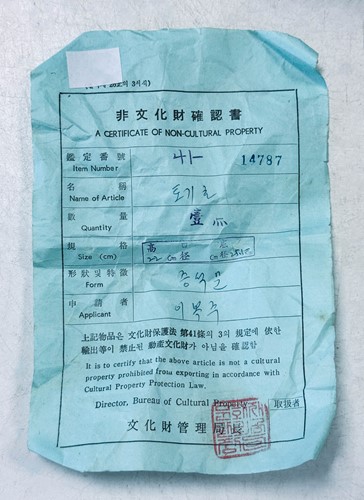 非文化財確認書
A CERTIFICATE OF NON-CULTURAL PROPERTY
鑑定番號 41- 14787
Item Number
名稱 토기호
Name of Article
數量 壹点
Quantity
規格 高
Size (cm) 22 Cm 径 Cm
形狀및特徵
Form
申請者
Applicant
上記物品은 文化財保護法 第41條의 3의 規定에 依한
輸出等이 禁止된 動產文化財가 아님을 確認함
It is to certify that the above article is not a cultural
property prohibited from exporting in accordance with
Cultural Property Protection Law.
Director, Bureau of Cultural Property 取扱者
文化財管理局長